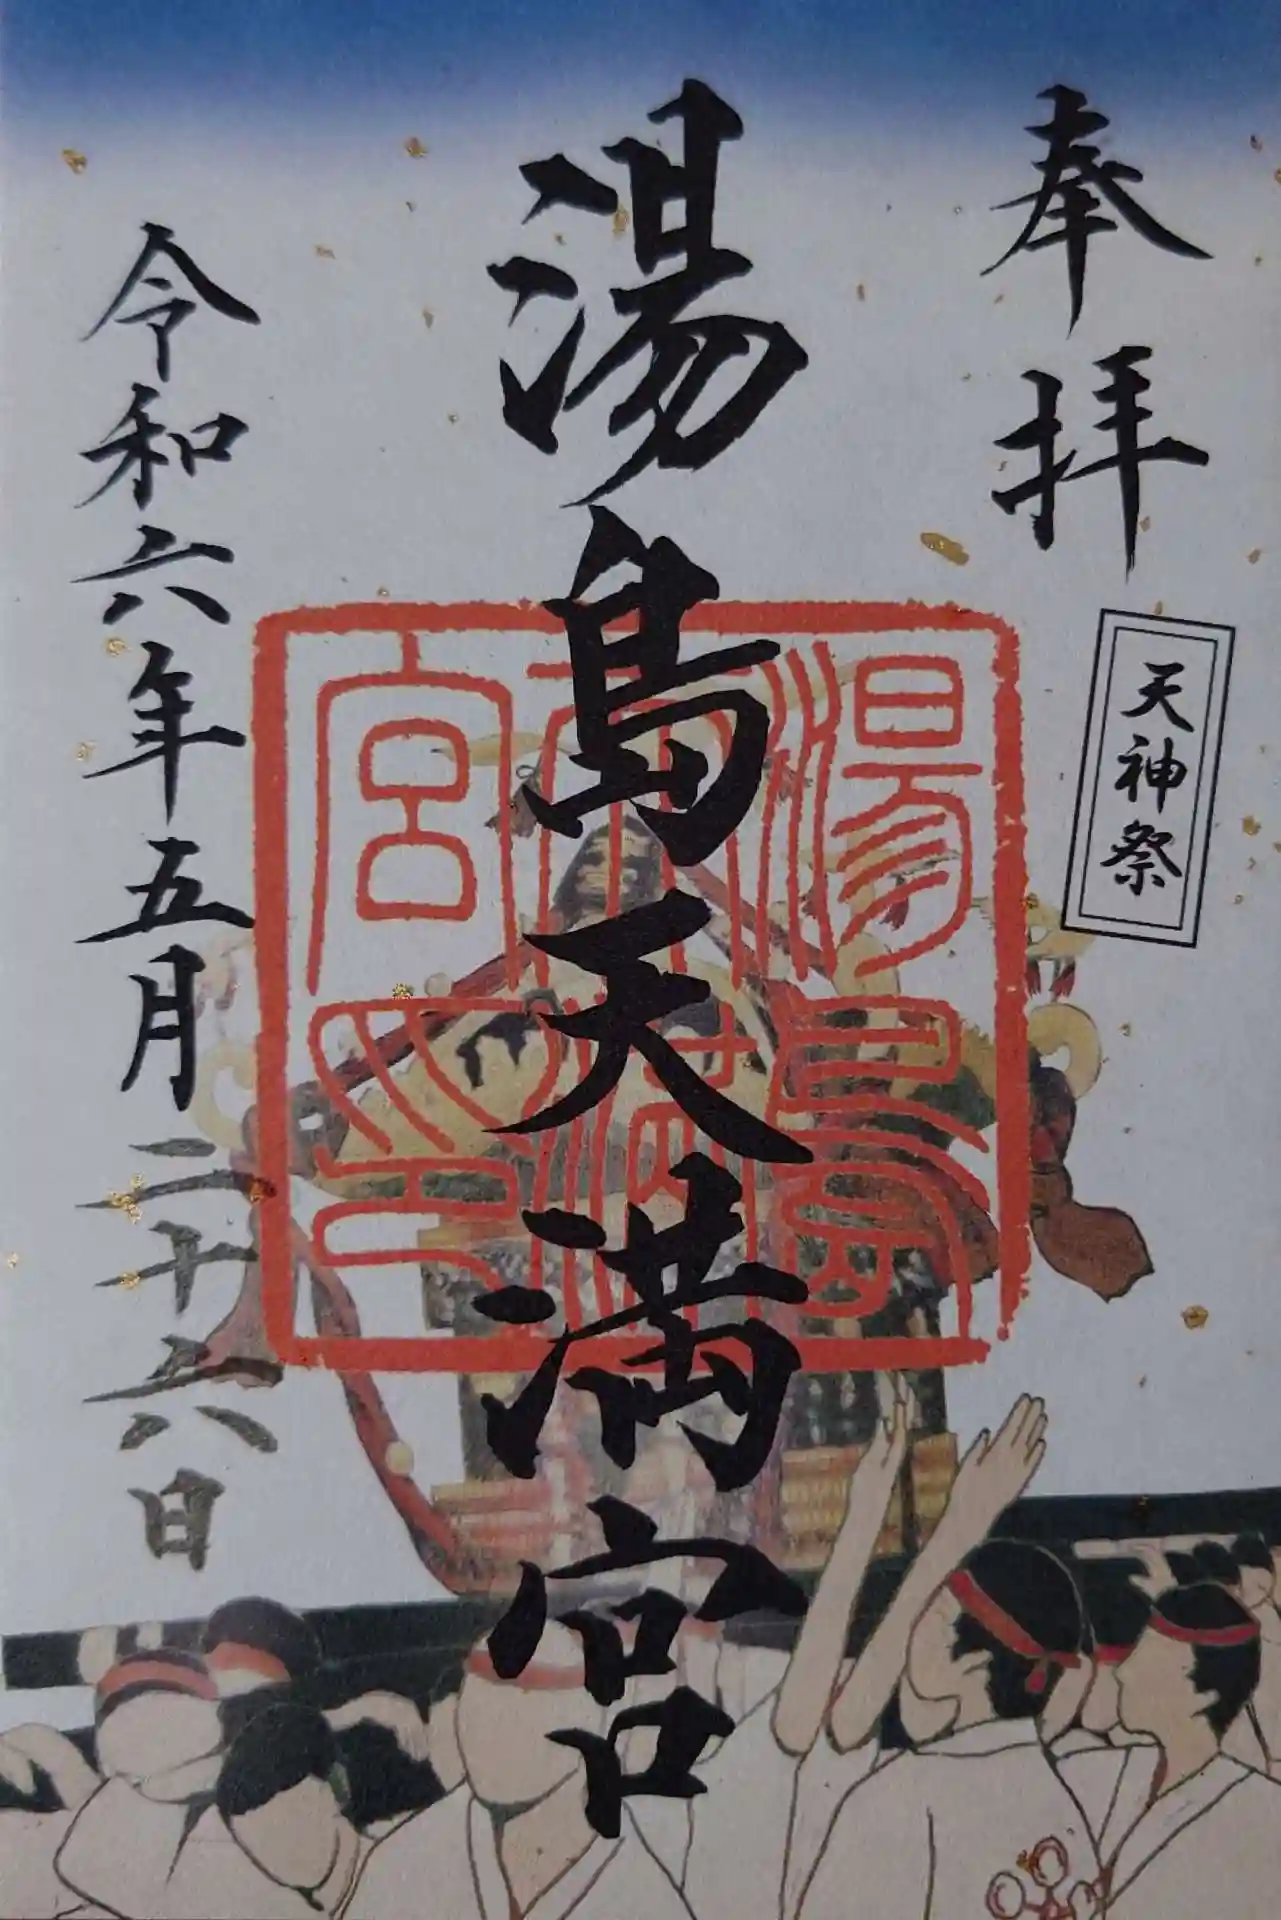 奉拝
天神祭
湯島天満宮
湯島天満宮印
令和六年五月二十六日